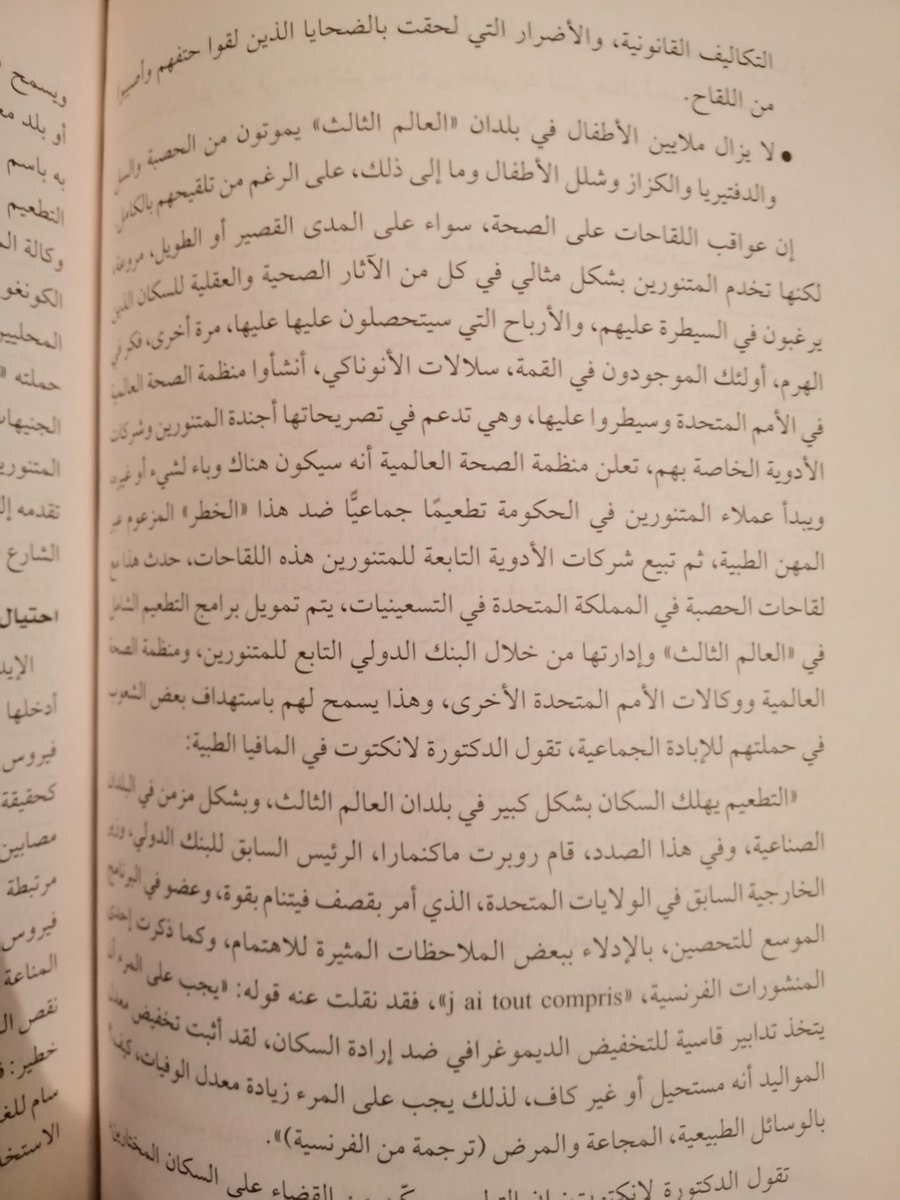 التكاليف القانونية، والأضرار التي لحقت بالضحايا الذين لقوا حتفهم وأصيبوا
من اللقاح.
• لا يزال ملايين الأطفال في بلدان «العالم الثالث» يموتون من الحصبة والسل
والدفتيريا والكزاز وشلل الأطفال وما إلى ذلك، على الرغم من تلقيحهم بالكامل
إن عواقب اللقاحات على الصحة، سواء على المدى القصير أو الطويل، مروعة،
لكنها تخدم المتنورين بشكل مثالي في كل من الآثار الصحية والعقلية للسكان الذين
يرغبون في السيطرة عليهم، والأرباح التي سيتحصلون عليها عليها، مرة أخرى، فكر في
الهرم، أولئك الموجودون في القمة، سلالات الأنوناكي، أنشأوا منظمة الصحة العالمية
في الأمم المتحدة وسيطروا عليها، وهي تدعم في تصريحاتها أجندة المتنورين وشركات
الأدوية الخاصة بهم، تعلن منظمة الصحة العالمية أنه سيكون هناك وباء لشيء أو غيره
ويبدأ عملاء المتنورين في الحكومة تطعيمًا جماعيًّا ضد هذا «الخطر» المزعوم عبر
المهن الطبية، ثم تبيع شركات الأدوية التابعة للمتنورين هذه اللقاحات، حدث هذا مع
لقاحات الحصبة في المملكة المتحدة في التسعينيات، يتم تمويل برامج التطعيم الشامل
في «العالم الثالث» وإدارتها من خلال البنك الدولي التابع للمتنورين، ومنظمة الصحة
العالمية ووكالات الأمم المتحدة الأخرى، وهذا يسمح لهم باستهداف بعض الشعوب
في حملتهم للإبادة الجماعية، تقول الدكتورة لانكتوت في المافيا الطبية:
«التطعيم يهلك السكان بشكل كبير في بلدان العالم الثالث، وبشكل مزمن في البلدان
الصناعية، وفي هذا الصدد، قام روبرت ماكنمارا، الرئيس السابق للبنك الدولي، وزير
الخارجية السابق في الولايات المتحدة، الذي أمر بقصف فيتنام بقوة، وعضو في البرنامج
الموسع للتحصين، بالإدلاء ببعض الملاحظات المثيرة للاهتمام، وكما ذكرت إحدى
المنشورات الفرنسية، «j ai tout compris»، فقد نقلت عنه قوله: «يجب على المرء أن
يتخذ تدابير قاسية للتخفيض الديموغرافي ضد إرادة السكان، لقد أثبت تخفيض معدل
المواليد أنه مستحيل أو غير كاف، لذلك يجب على المرء زيادة معدل الوفيات، كيف؟
بالوسائل الطبيعية، المجاعة والمرض (ترجمة من الفرنسية)».
تقول الدكتورة لانكتوت: إن القضاء على السكان المختارين
ويسمح
أو بلد
به باسم
التطعيم
وكالة
الكونغو
المحليين
حملته
المتنورين
تقدمه
الشارع
احتيال
أدخلها
فيروس
كحقيقة
مصابين
مرتبطة
فيروس
المناعة
نقص
خطير:
سام